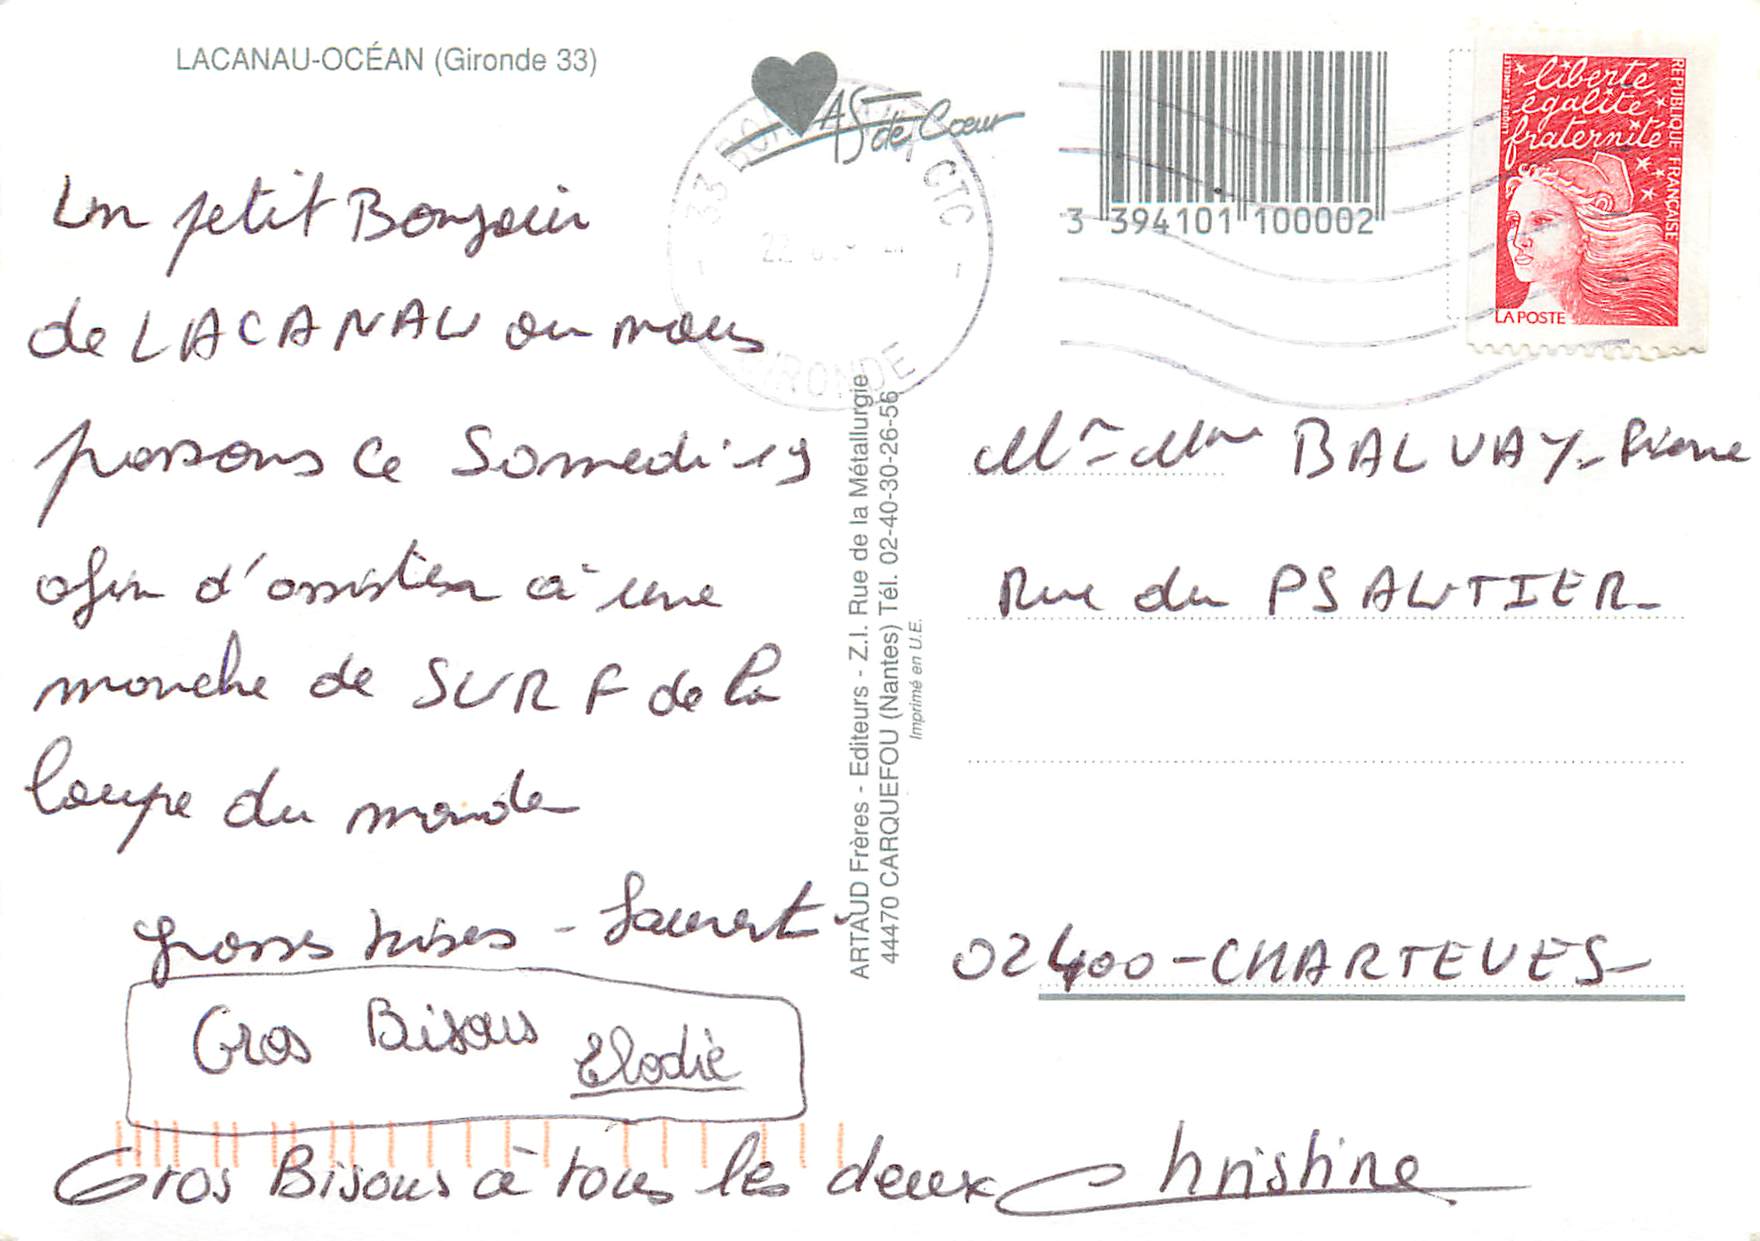 LACANAU-OCÉAN (Gironde 33)
AS de Cœur
33 BORDEAUX CTC
GIRONDE
3 394101 100002
liberté
égalité
fraternité
RÉPUBLIQUE FRANÇAISE
LA POSTE
Un petit Bonjour
de LACANAU ou nous
passons ce Samedi 19
afin d'assister à une
manche de SURF de la
Coupe du monde
Grosses bises - Laurent
Gros Bisous Elodie
Gros Bisous à tous les deux Christine
ARTAUD Frères - Editeurs - Z.I. Rue de la Métallurgie
44470 CARQUEFOU (Nantes) Tél. 02-40-30-26-56
Imprimé en U.E.
Mr Mme BALVAY-Pierre
Rue du PSAUTIER
02400-CHARTEVES